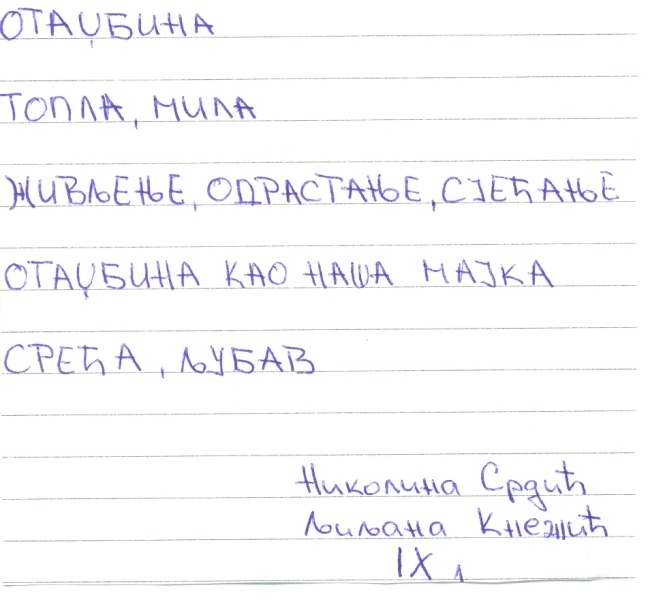 ОТАЏБИНА
ТОПЛА, МИЛА
ЖИВЉЕЊЕ, ОДРАСТАЊЕ, СЈЕЋАЊЕ
ОТАЏБИНА КАО НАША МАЈКА
СРЕЋА, ЉУБАВ
Николина Срдић
Љиљана Кнежић
IX 1